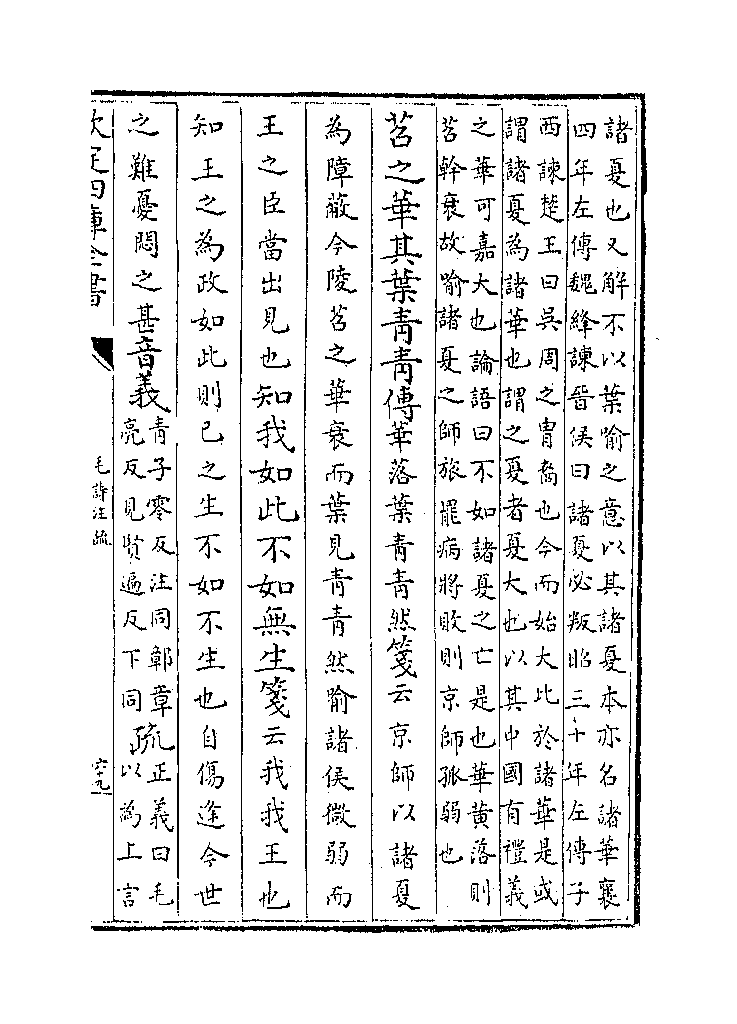 諸夏也又解不以葉喻之意以其諸夏本亦名諸華襄
四年左傳魏絳諫晉侯曰諸夏必叛昭三十年左傳子
西諫楚王曰吳周之胄裔也今而始大比於諸華是或
謂諸夏為諸華也謂之夏者夏大也以其中國有禮義
之華可嘉大也論語曰不如諸夏之亡是也華黄落則
苕幹衰故喻諸夏之師旅罷病將敗則京師孤弱也
苕之華其葉青青傳華落葉青青然箋云京師以諸夏
為障蔽今陵苕之華衰而葉見青青然喻諸侯微弱而
王之臣當出見也知我如此不如無生箋云我我王也
知王之為政如此則己之生不如不生也自傷逢今世
之難憂悶之甚音義青子零反注同鄣章
亮反見賢遍反下同疏正義曰毛
以為上言
欽定四庫全書
毛詩注疏
六十九